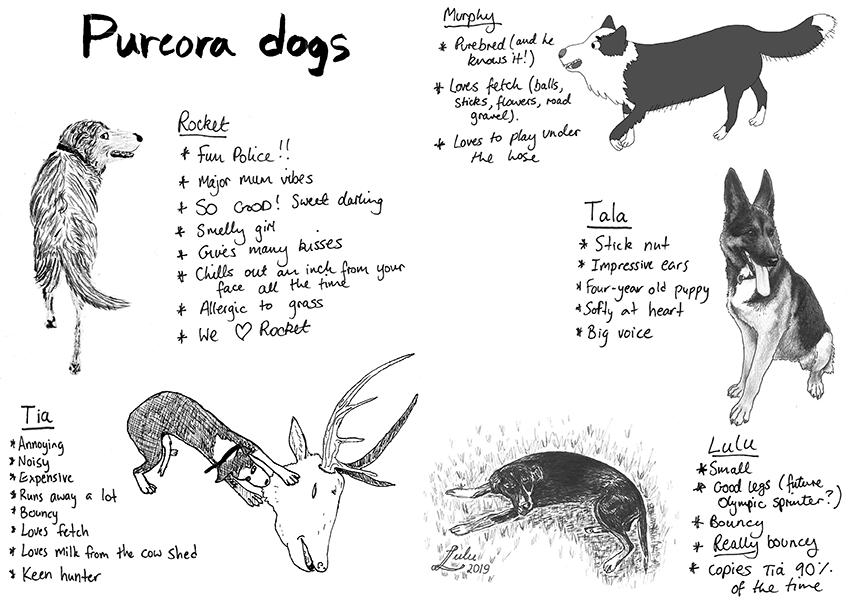 Pureora dogs
Rocket
* Fun Police!!
* Major mum vibes
* SO GOOD! Sweet darling
* Smelly girl
* Gives many kisses
* Chills out an inch from your
face all the time
* Allergic to grass
* We ♡ Rocket
Murphy
* Purebred (and he
knows it!)
* Loves fetch (balls,
sticks, flowers, road
gravel).
* Loves to play under
the hose
Tala
* Stick nut
* Impressive ears
* Four-year old puppy
* Softy at heart
* Big voice
Tia
* Annoying
* Noisy
* Expensive
* Runs away a lot
* Bouncy
* Loves fetch
* Loves milk from the cow shed
* Keen hunter
Lulu
* Small
* Good legs (future
Olympic sprinter?)
* Bouncy
* Really bouncy
* Copies Tia 90%
of the time
Lulu
2019